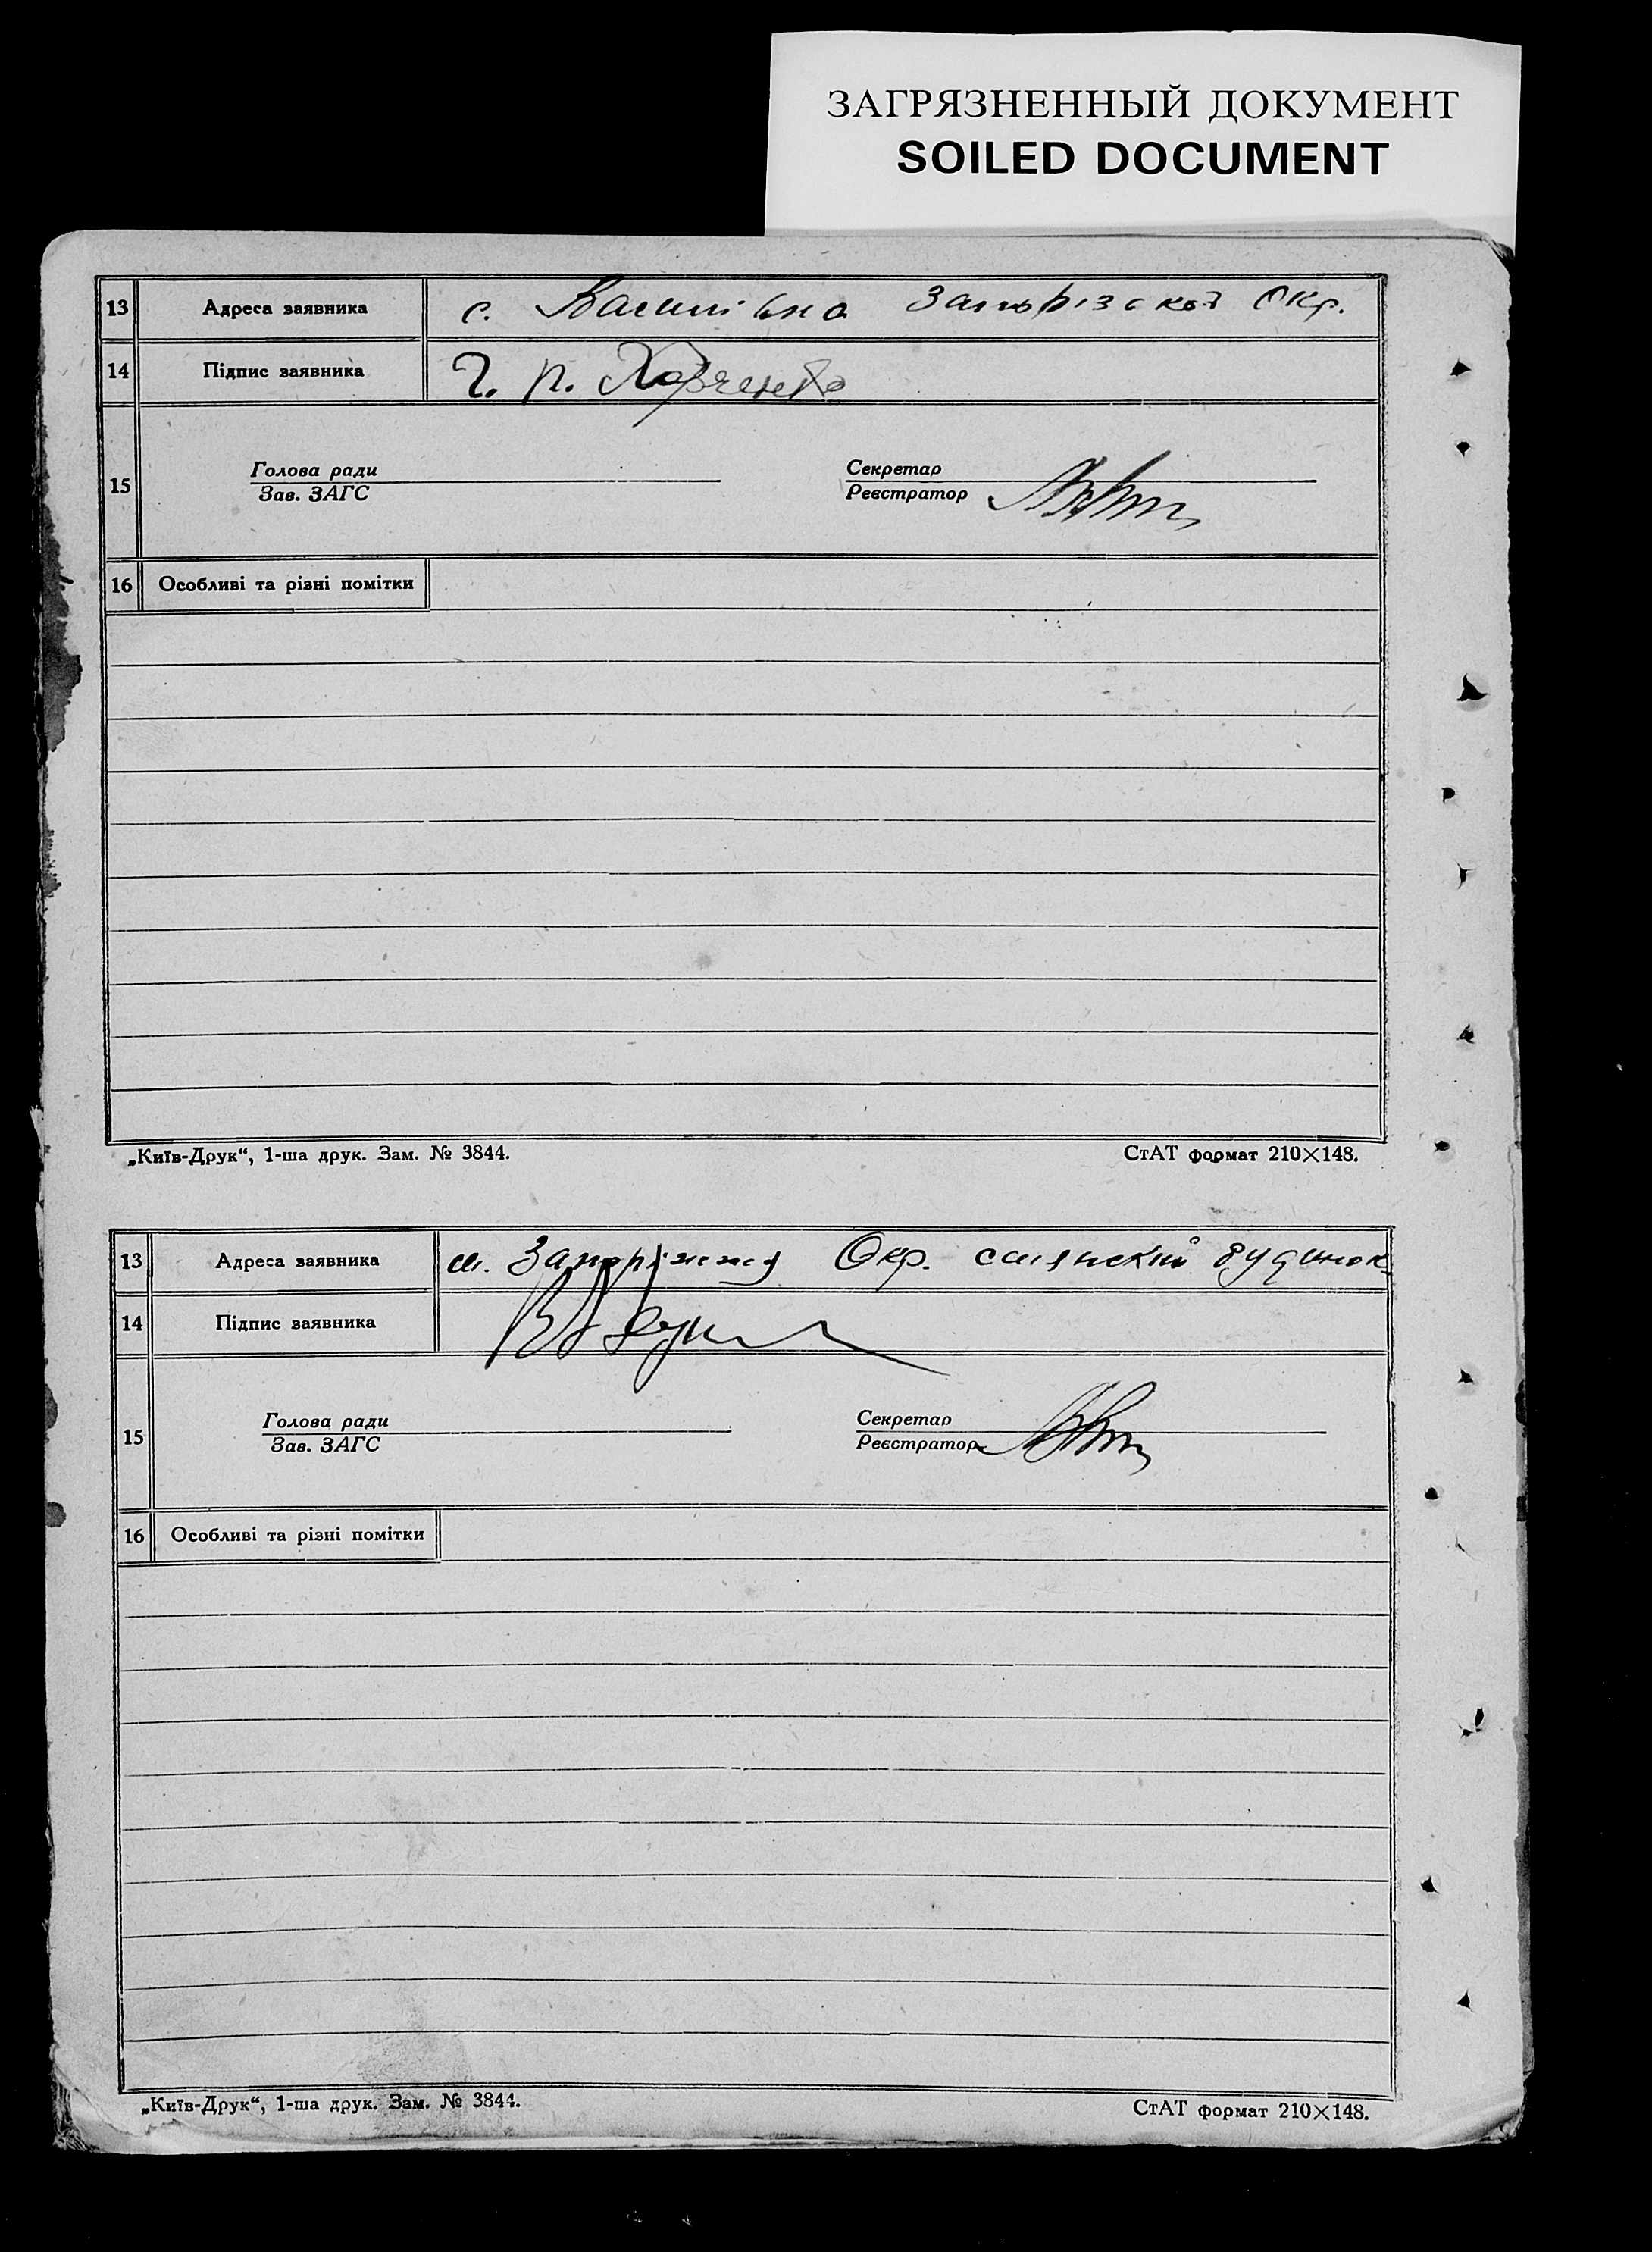 ЗАГРЯЗНЕННЫЙ ДОКУМЕНТ
SOILED DOCUMENT
13 Адреса заявника с. Василівка Запорізской Окр.
14 Підпис заявника Г. П. Харченко
15 Голова ради Секретар
Зав. ЗАГС Реєстратор
16 Особливі та різні помітки
„Київ-Друк“, 1-ша друк. Зам. № 3844. СтАТ формат 210×148.
13 Адреса заявника м. Запоріжжя Окр. селянский будинок
14 Підпис заявника
15 Голова ради Секретар
Зав. ЗАГС Реєстратор
16 Особливі та різні помітки
„Київ-Друк“, 1-ша друк. Зам. № 3844. СтАТ формат 210×148.